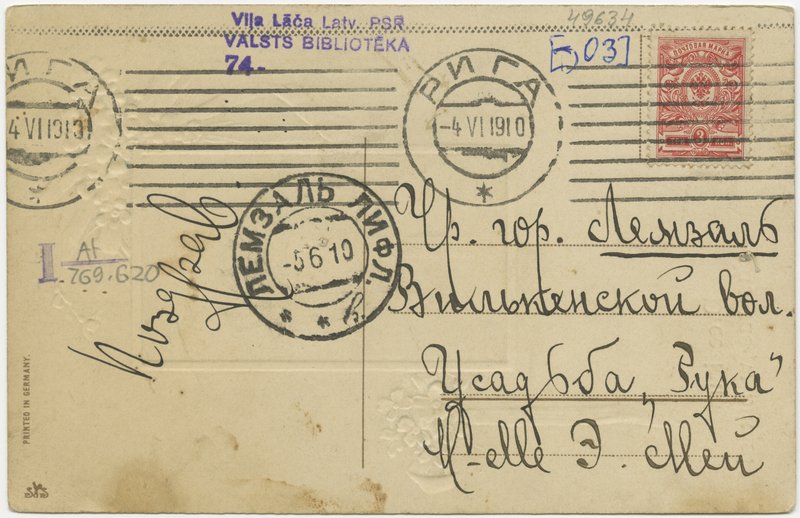 Viļa Lāča Latv. PSR
VALSTS BIBLIOTĒKA
74.-
49634
Б 037
РИГА
-4 VI 1910
РИГА
-4 VI 1910
ПОЧТОВАЯ МАРКА
3
ЛЕМЗАЛЬ ЛИФЛ.
-5 6 10
I At
769.620
Чр. гор. Лемзаль
Вилькенской вол.
Усадьба „Рука"
M-elle Э. Мей
PRINTED IN GERMANY.